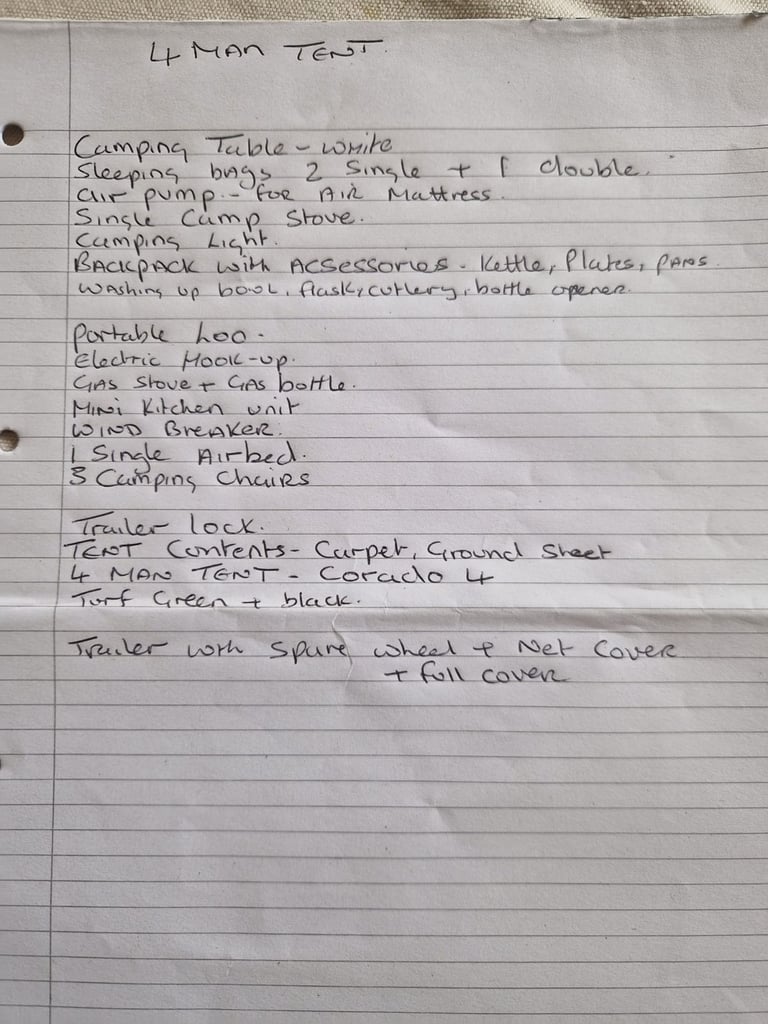 4 MAN TENT.
Camping Table - White
Sleeping bags 2 Single + 1 double.
air pump - for Air Mattress.
Single Camp Stove.
Camping Light.
BACKPACK with ACSESSORIES - Kettle, Plates, PANS.
Washing up bowl, flask, cutlery, bottle opener.
Portable Loo.
Electric Hook-up.
GAS Stove + GAS bottle.
Mini Kitchen unit
WIND BREAKER.
1 Single Airbed.
3 Camping Chairs
Trailer lock.
TENT Contents - Carpet, Ground Sheet
4 MAN TENT - Corado 4
Turf Green + black.
Trailer with Spare wheel + Net Cover
+ full cover